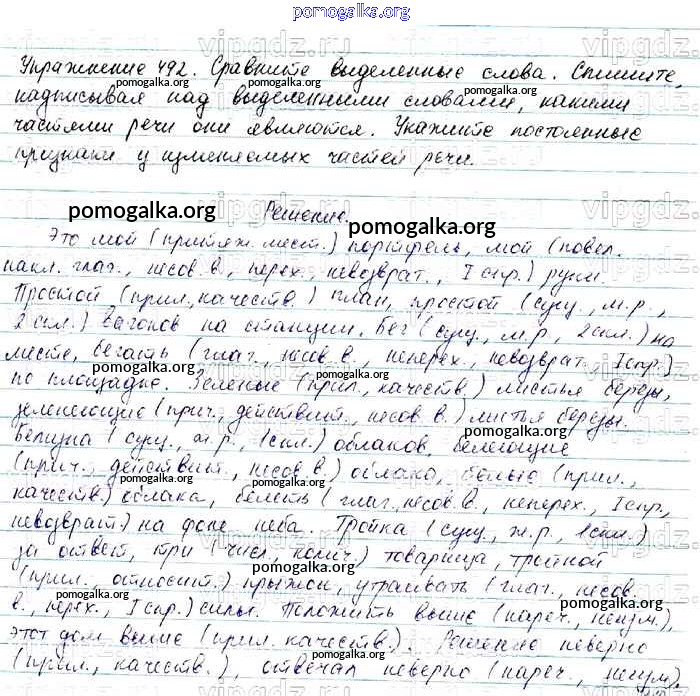 pomogalka.org
Упражнение 492. Сравните выделенные слова. Спишите,
надписывая над выделенными словами, какими
частями речи они являются. Укажите постоянные
признаки у изменяемых частей речи.
Решение.
Это мой (притяж. мест.) портфель, мой (повел.
накл. глаг., несов. в., перех., невозврат., I спр.) руки.
Простой (прил., качеств.) план, простой (сущ., м.р.,
2 скл.) вагонов на станции. Бег (сущ., м.р., 2 скл.) на
месте, бегать (глаг., несов. в., неперех., невозврат., I спр.)
по площадке. Зеленые (прил., качеств.) листья березы,
зеленеющие (прич., действит., несов. в.) листья березы.
Белизна (сущ., ж.р., 1 скл.) облаков, белеющие
(прич., действит., несов. в.) облака, белые (прил.,
качеств.) облака, белеть (глаг., несов. в., неперех., I спр.,
невозврат.) на фоне неба. Тройка (сущ., ж.р., 1 скл.)
за ответ, три (числ., колич.) товарища, тройной
(прил., относит.) прыжок, утраивать (глаг., несов.
в., перех., I спр.) силы. Положить выше (нареч., неизм.),
этот дом выше (прил. качеств.). Решение неверно
(прил., качеств.), отвечал неверно (нареч., неизм.)